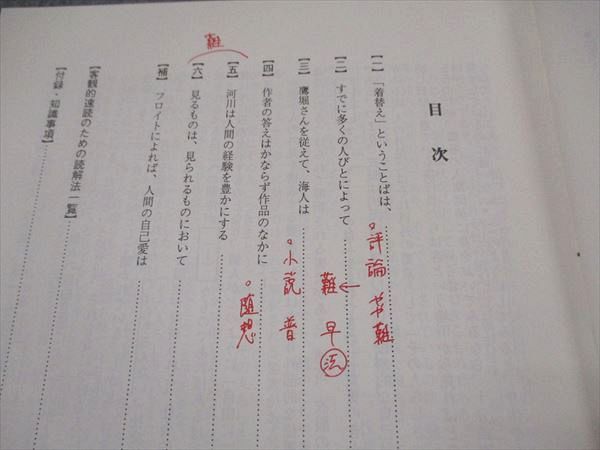 目次
【一】「着替え」ということばは、
。評論 やや難
【二】すでに多くの人びとによって
難 早 法
【三】鷹堀さんを従えて、海人は
。小説 普
【四】作者の答えはかならず作品のなかに
。随想
【五】河川は人間の経験を豊かにする
難
【六】見るものは、見られるものにおいて
【補】フロイトによれば、人間の自己愛は
【客観的速読のための読解法一覧】
【付録・知識事項】